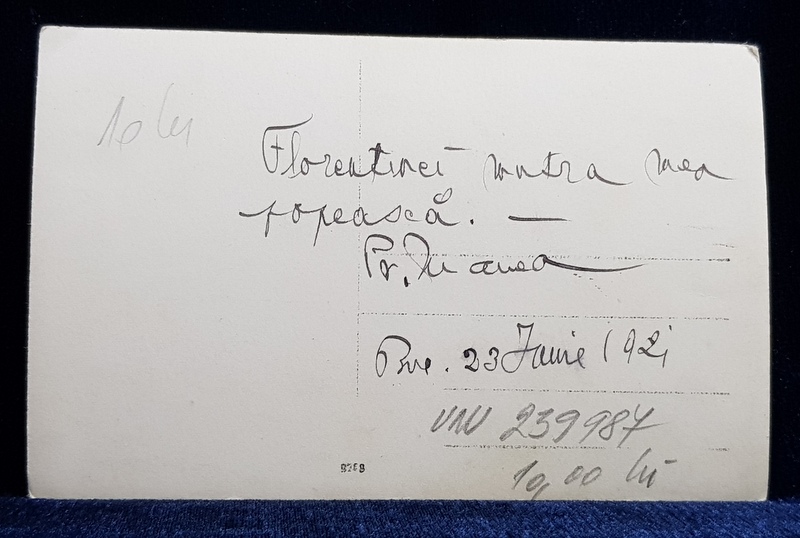 10 lei
Florentinei mutra mea
popească. —
Pr. Manea
Buc. 23 Iunie 1921
VNU 239987
10,00 lei
9268